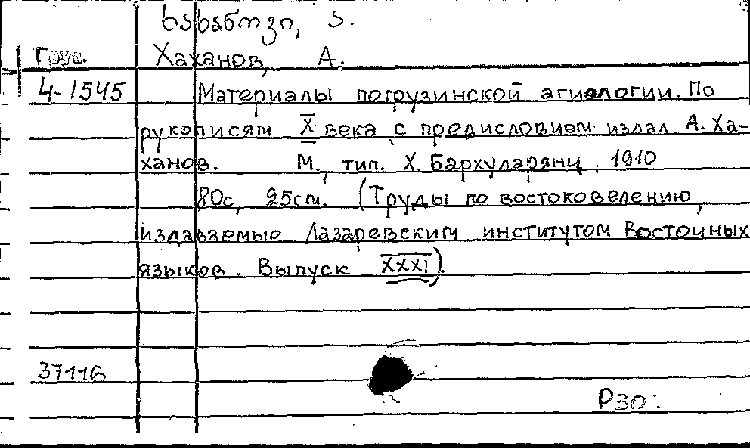 ხახანოვი, ა.
Груз. Хаханов, А.
4-1545 Материалы по грузинской агиологии. По
рукописям X века с предисловием издал А. Ха-
ханов. М., тип. Х. Бархударянц, 1910
80с, 25см. (Труды по востоковедению,
издаваемые Лазаревским институтом Восточных
языков. Выпуск XXXI).
37116
РЗО.